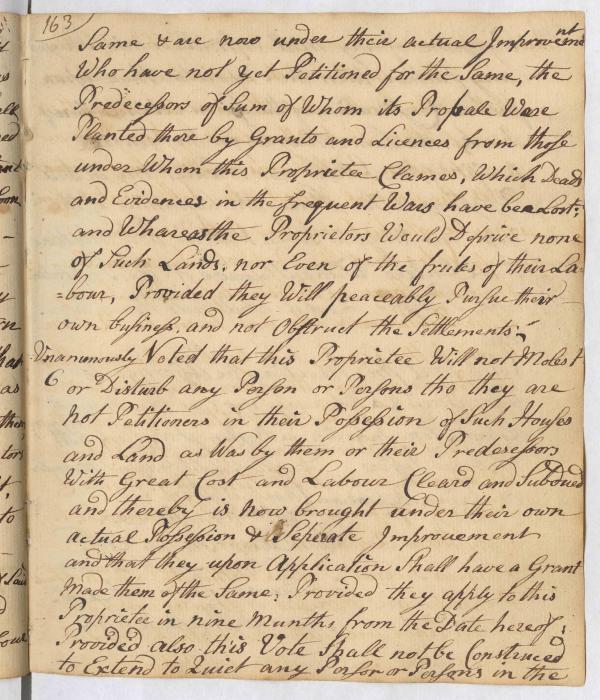 163
Same & are now under their actual Improvemnt
Who have not yet Petitioned for the Same, the
Predecessors of Sum of Whom its Propale Ware
Planted there by Grants and Licences from those
under Whom this Proprietee Clames, Which Deads
and Evidences in the frequent Wars have bee Lost;
and Whareas the Proprietors Would Deprive none
of Such Lands, nor Even of the frutes of their La-
=bour, Provided they Will peaceably Pursue their
own business, and not Obstruct the Settlements;
Unanumously Voted that this Proprietee Will not Molest
6 or Disturb any Person or Persons tho they are
not Petitioners in their Possession of Such Houses
and Land as Was by them or their Predesessors
With Great Cost and Labour Cleard and Subdued
and thereby is now brought under their own
actual Possession & Seperate Improvement
and that they upon Application Shall have a Grant
Made them of the Same; Provided they apply to this
Proprietee in nine Munths from the Date hereof;
Provided also this Vote Shall not be Construced
to Extend to Quiet any Person or Persons in the